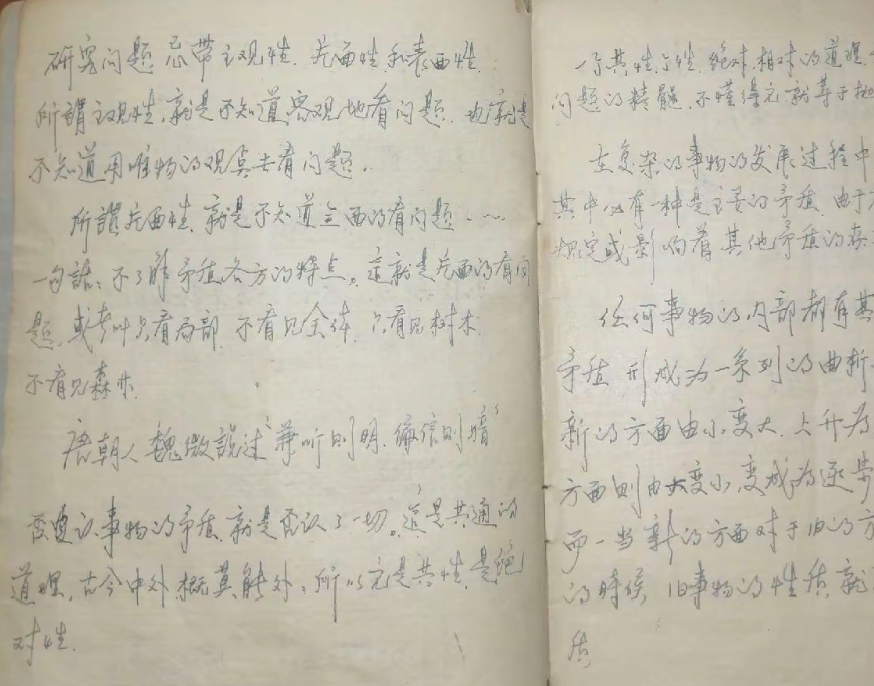 研究问题忌带主观性、片面性和表面性。
所謂主观性,就是不知道客观地看问题,也就是
不知道用唯物的观点去看问题。
所謂片面性,就是不知道全面的看问题……
一句話:不了解矛盾各方的特点。這就是片面的看问
题,或者叫只看局部,不看见全体,只看见树木
不看见森林。
唐朝人魏徵説过“兼听则明,偏信则暗”
否认事物的矛盾就是否认了一切。這是共通的
道理,古今中外概莫能外,所以它是共性,是绝
对性。
一个共性个性、绝对相对的道理,
问题的精髓,不懂得它就等于抛
在复杂的事物的发展过程中
其中必有一种是主要的矛盾,由于
规定或影响着其他矛盾的存
任何事物的内部都有其
矛盾形成为一系列的曲折
新的方面由小变大,上升为
方面则由大变小,变成为逐步
而一当新的方面对于旧的方
的时候,旧事物的性质就
质